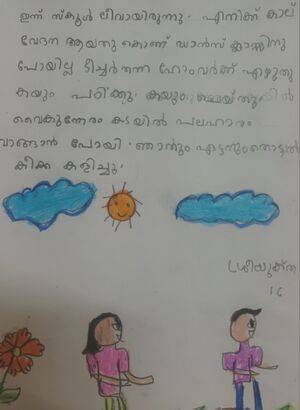 ഇന്ന് സ്കൂൾ ലീവായിരുന്നു. എനിക്ക് കാല്
വേദന ആയതു കൊണ്ട് ഡാൻസ് ക്ലാസ്സിനു
പോയില്ല ടീച്ചർ തന്ന ഹോംവർക്ക് എഴുതു
കയും പഠിക്കു കയും ചെയ്തു
വൈകുന്നേരം കടയിൽ പലഹാരം
വാങ്ങാൻ പോയി ഞാനും ഏട്ടനും തൊട്ടാൽ
കളിച്ചു.
ശ്രീയുക്ത
1 C